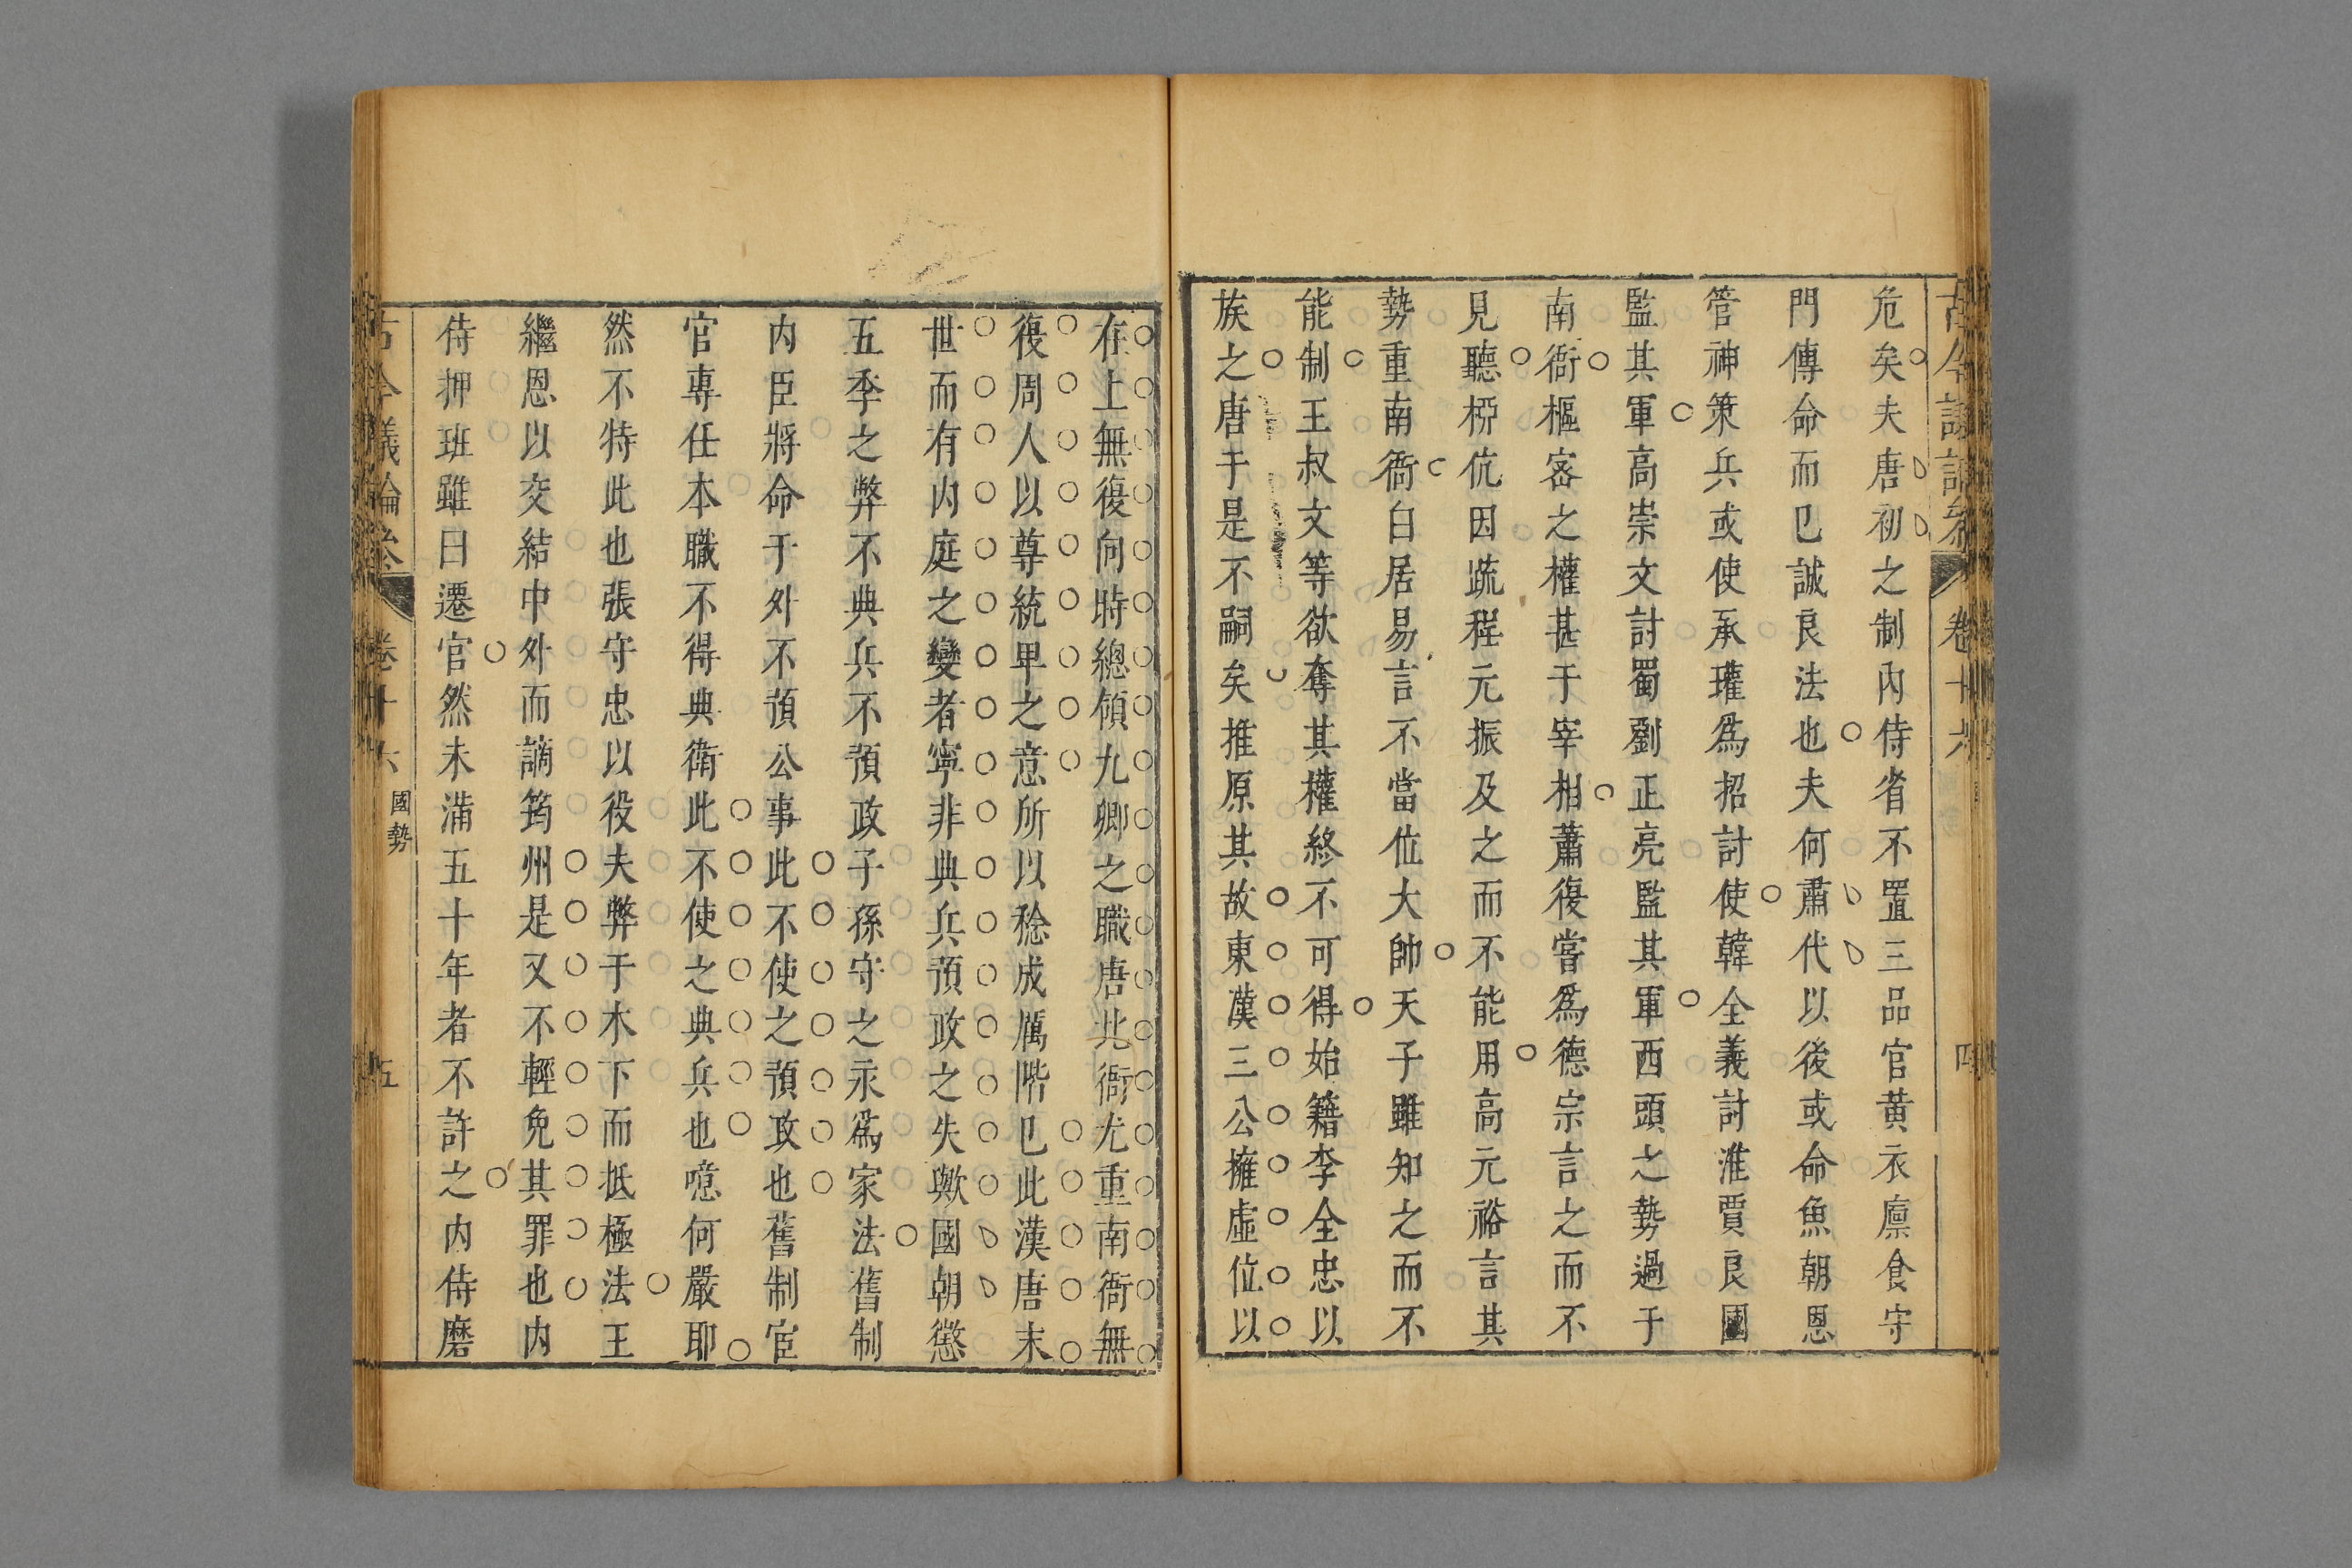 危矣夫唐初之制內侍省不置三品官黃衣廩食守
門傳命而已誠良法也夫何肅代以後或命魚朝恩
管神策兵或使承璀爲招討使韓全義討淮賈良國
監其軍高崇文討蜀劉正亮監其軍西頭之勢過于
南衙樞密之權甚于宰相蕭復嘗爲德宗言之而不
見聽椏伉因疏程元振及之而不能用高元裕言其
勢重南衙白居易言不當位大帥天子雖知之而不
能制王叔文等欲奪其權終不可得始籍李全忠以
族之唐于是不嗣矣推原其故東漢三公擁虛位以
在上無復向時總領九卿之職唐北衙尤重南衙無
復周人以尊統卑之意所以稔成厲階巳此漢唐末
世而有內庭之變者寧非典兵預政之失歟國朝懲
五季之弊不典兵不預政子孫守之永爲家法舊制
內臣將命于外不預公事此不使之預政也舊制宦
官專任本職不得典衛此不使之典兵也噫何嚴耶
然不特此也張守忠以役夫弊于木下而抵極法王
繼恩以交結中外而謫筠州是又不輕免其罪也內
侍押班雖日遷官然未滿五十年者不許之內侍磨
古今議論參 卷十六 國勢 五